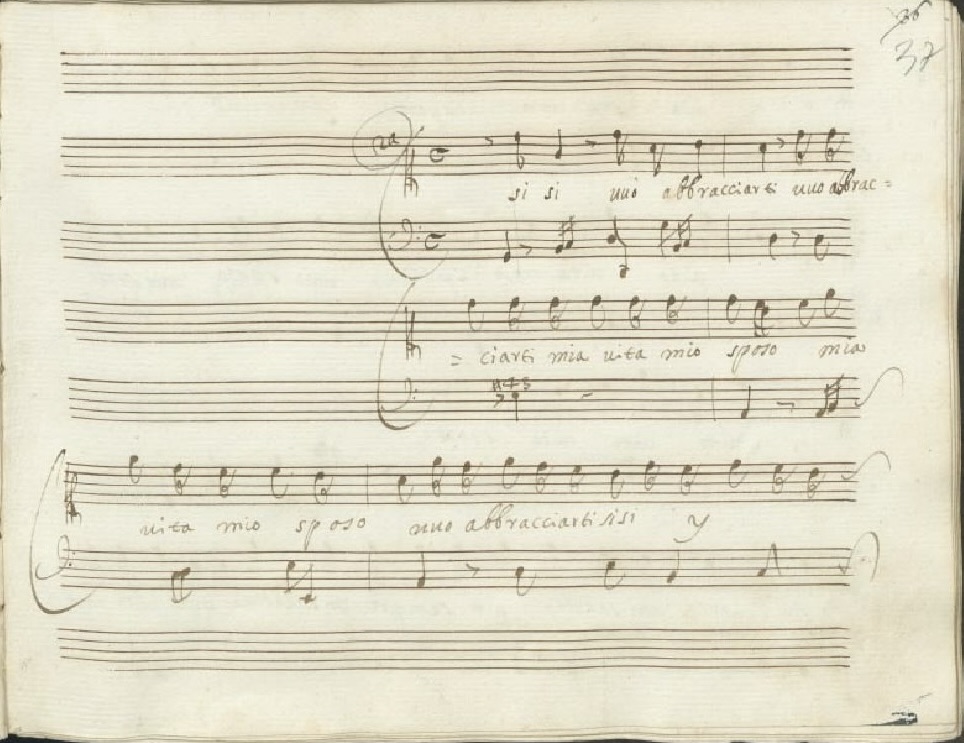 37
2a
si si vuo abbracciarti vuo abbrac=
= ciarti mia vita mio sposo mia
vita mio sposo vuo abbracciarti si si y